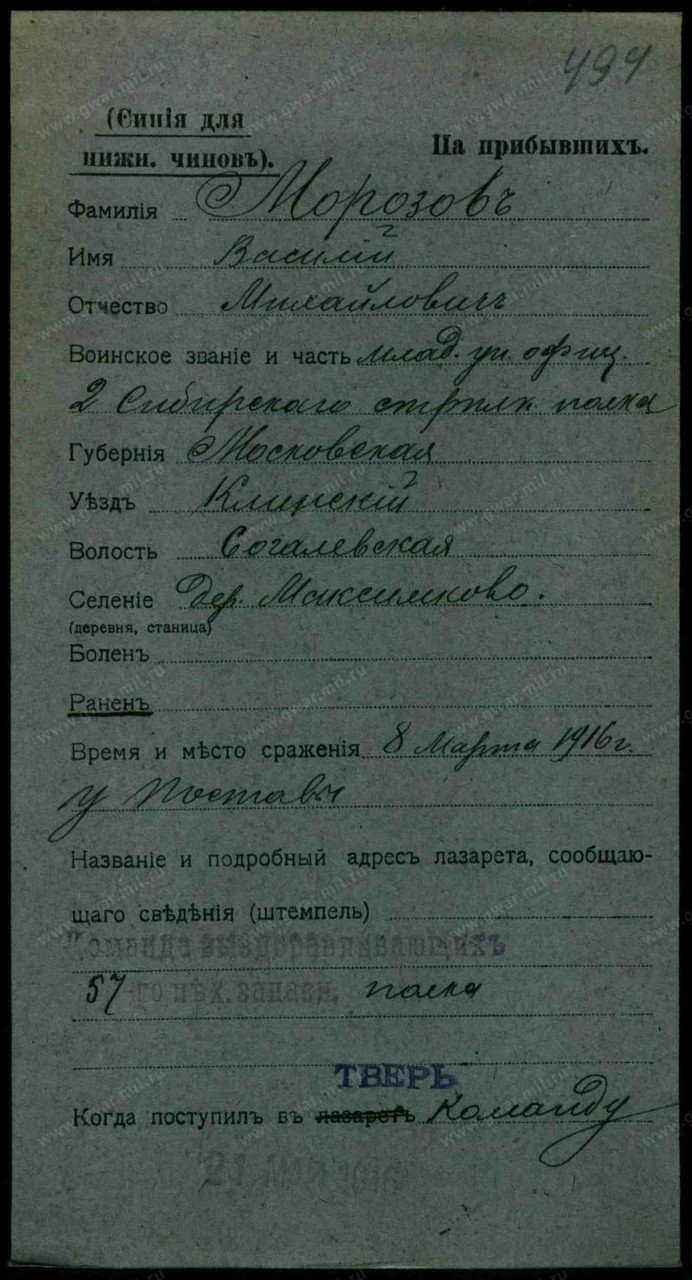 494
(Синія для
нижн. чиновъ).
На прибывшихъ.
Фамилія Морозовъ
Имя Василій
Отчество Михайловичъ
Воинское званіе и часть млад. ун. офиц.
2 Сибирскаго стрѣлк. полка
Губернія Московская
Уѣздъ Клинскій
Волость Согалевская
Селеніе дер. Максимково.
(деревня, станица)
Боленъ
Раненъ
Время и мѣсто сраженія 8 Марта 1916 г.
у Поставы
Названіе и подробный адресъ лазарета, сообщаю-
щаго свѣдѣнія (штемпель)
Команда выздоравливающихъ
57 го пѣх. запасн. полка
ТВЕРЬ
Когда поступилъ въ лазаретъ Команду
21 МАЯ 1916
www.gwar.mil.ru